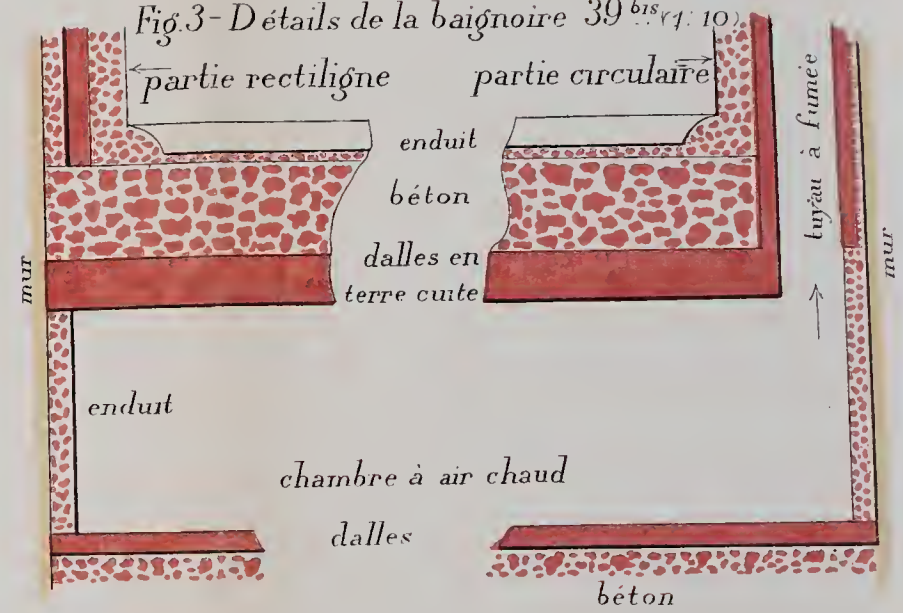 Fig.3 - Détails de la baignoire 39 bis. (1:10)
partie rectiligne
partie circulaire
enduit
béton
dalles en
terre cuite
mur
tuyau à fumée
mur
enduit
chambre à air chaud
dalles
béton